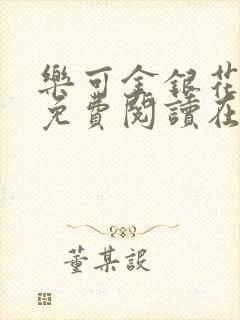 樂可金銀花
免費閱讀在
董某設